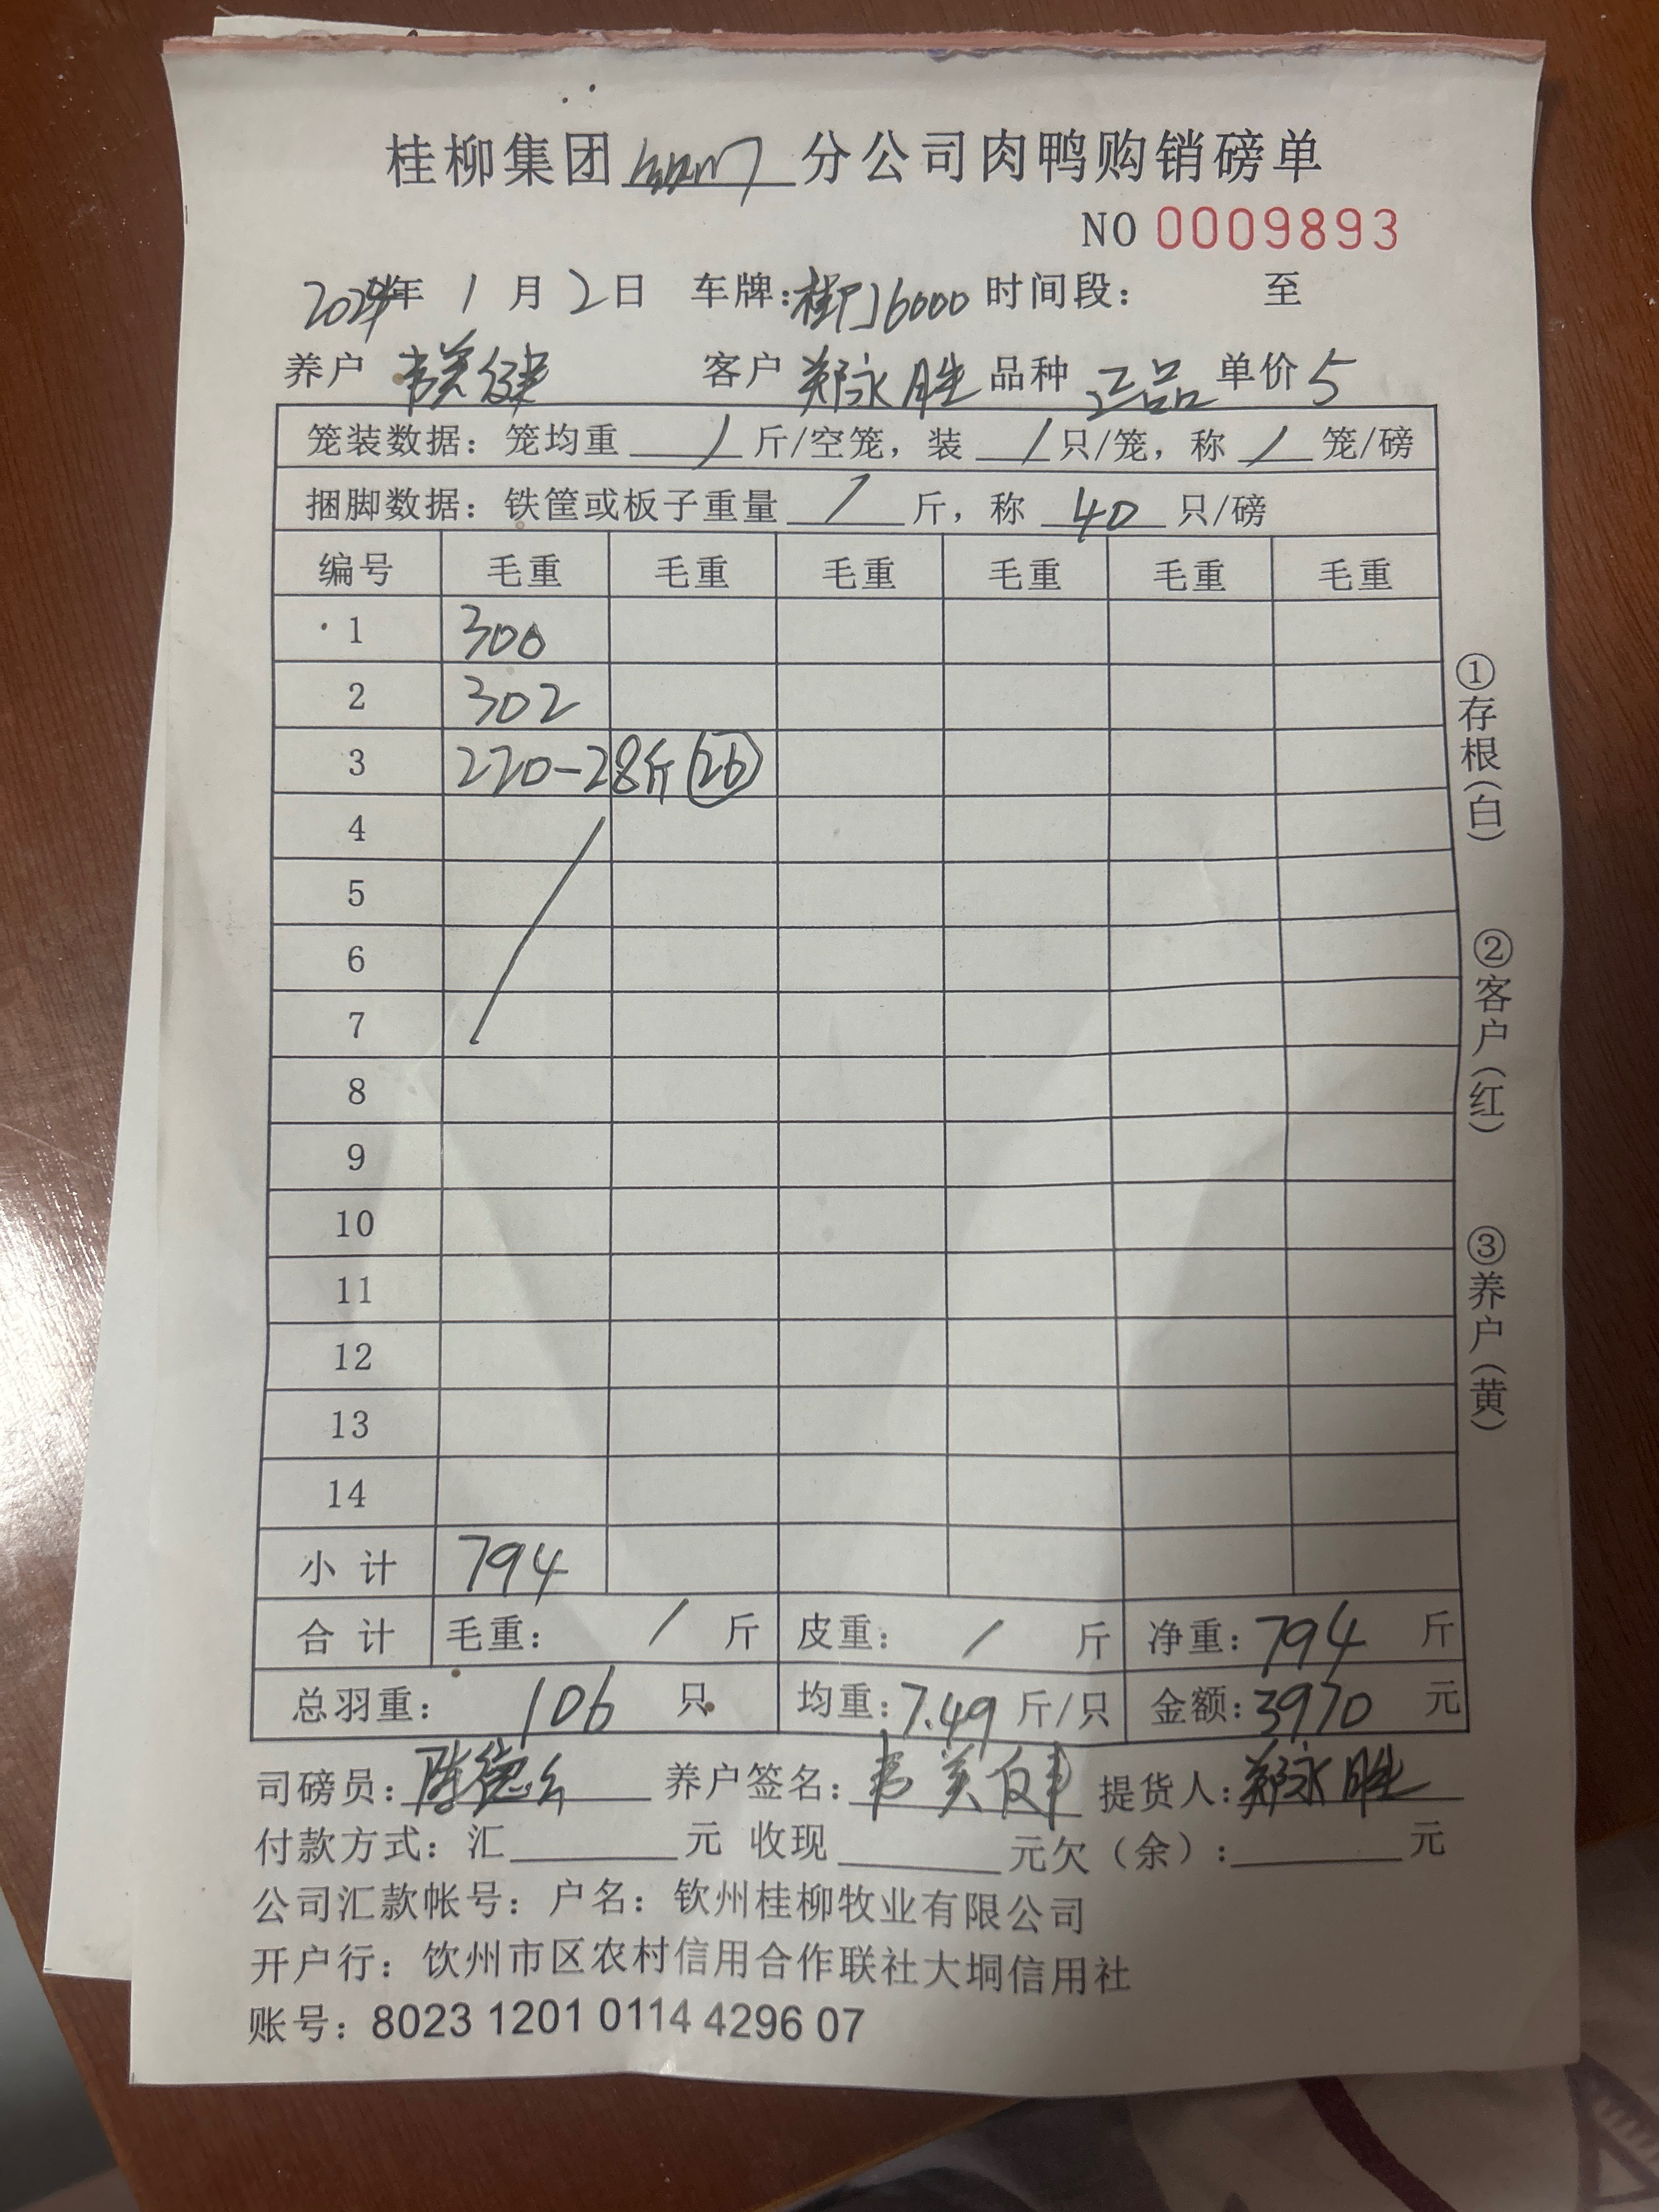 桂柳集团 分公司肉鸭购销磅单
NO 0009893
2024年 1月2日 车牌: J6000 时间段: 至
养户 韦美健 客户 郑永胜 品种 正品 单价 5
笼装数据: 笼均重 / 斤/空笼, 装 / 只/笼, 称 / 笼/磅
捆脚数据: 铁筐或板子重量 / 斤, 称 40 只/磅
编号 毛重 毛重 毛重 毛重 毛重 毛重
1 300
2 302
3 220-28斤 26
4
5
6
7
8
9
10
11
12
13
14
小计 794
合计 毛重: / 斤 皮重: / 斤 净重: 794 斤
总羽重: 106 只 均重: 7.49 斤/只 金额: 3970 元
司磅员: 养户签名: 韦美健 提货人: 郑永胜
付款方式: 汇 元 收现 元欠(余): 元
公司汇款帐号: 户名: 钦州桂柳牧业有限公司
开户行: 钦州市区农村信用合作联社大垌信用社
账号: 8023 1201 0114 4296 07
①存根(白)
②客户(红)
③养户(黄)